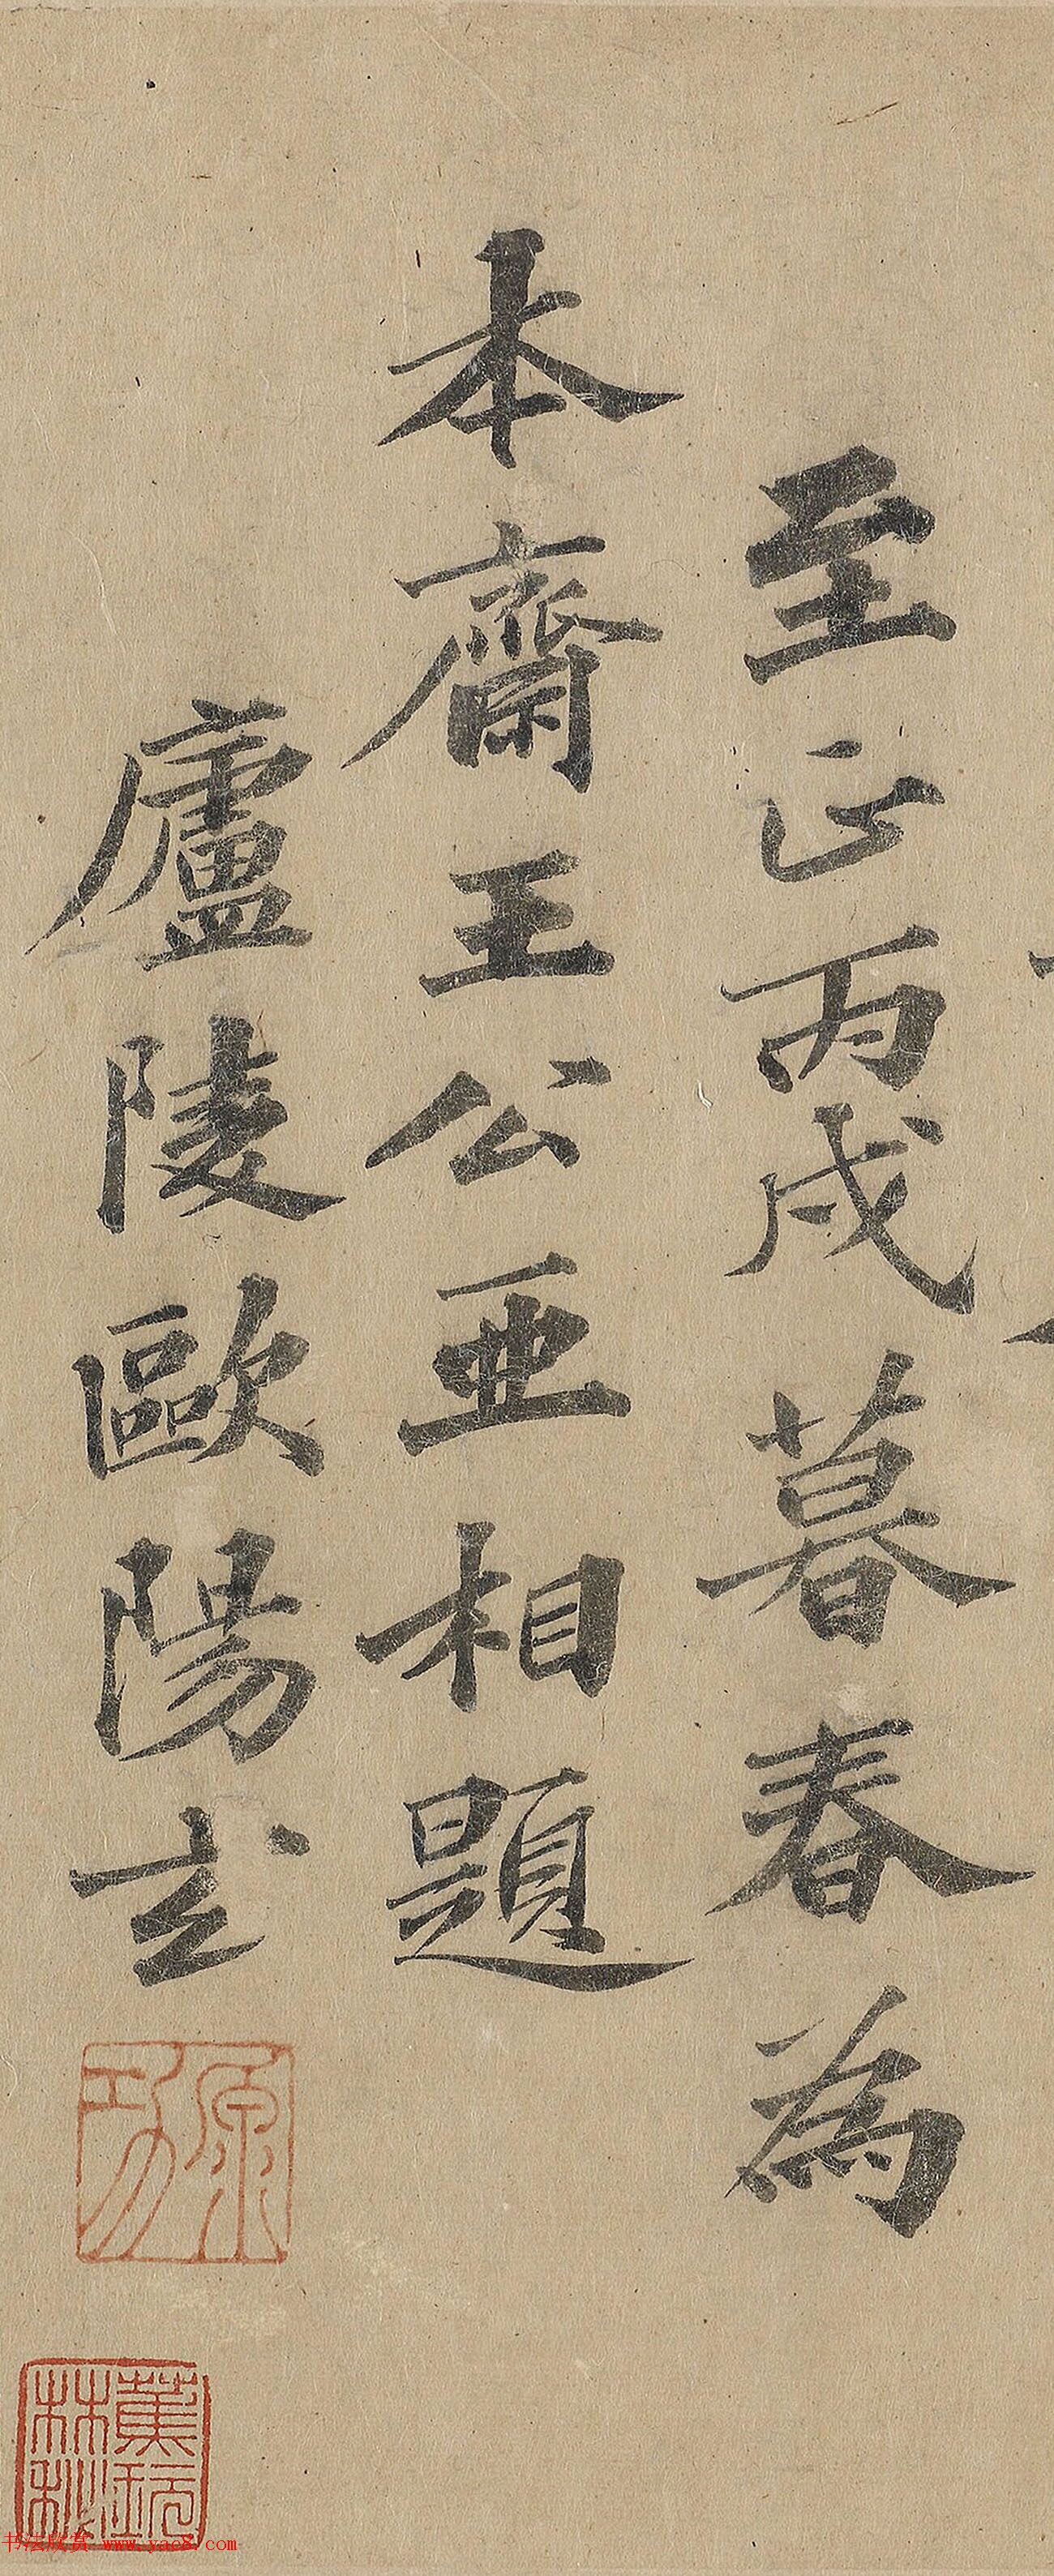 至正丙戌暮春為
本齋王公亞相題
廬陵歐陽玄
原功
蕉林秘玩
书法欣赏 www.yac8.com